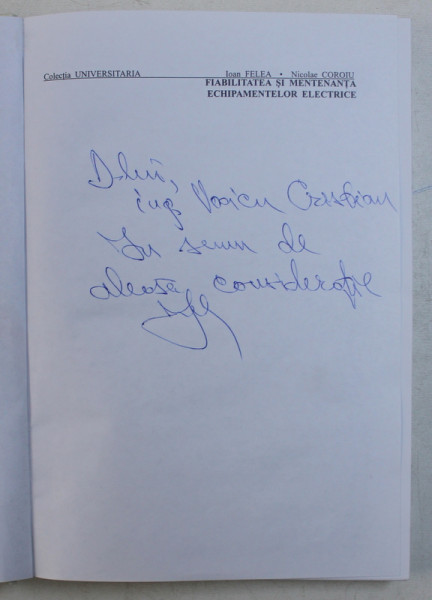 Colecția UNIVERSITARIA Ioan FELEA • Nicolae COROIU
FIABILITATEA ȘI MENTENANȚA
ECHIPAMENTELOR ELECTRICE
D-lui,
ing. Cristian
În semn de
aleasă considerație